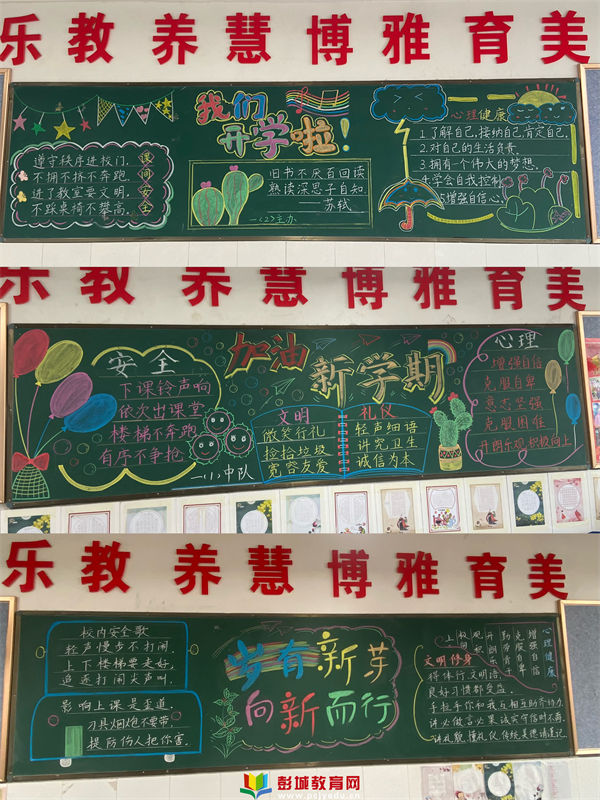 乐教 养慧 博雅育美
我们
开学啦!
遵守秩序进校门,
不拥不挤不奔跑,
进了教室要文明,
不踩桌椅不攀高。
课
间
安
全
旧书不厌百回读
熟读深思子自知
苏轼
一(2)主办
心理健康
1.了解自己,接纳自己肯定自己.
2.对自己的生活负责.
3.拥有一个伟大的梦想.
4.学会自我控制
5.增强自信心.
乐教 养慧 博雅育美
安全
下课铃声响
依次出课堂
楼梯不奔跑
自序不争抢
一(1)中队
加油
新学期
文明
微笑行礼
捡拾垃圾
宽容友爱
礼仪
轻声细语
讲究卫生
诚信为本
心理
增强自信
克服自卑
意志坚强
克服困难
开朗乐观积极向上
乐教 养慧 博雅育美
校内安全歌
轻声慢步不打闹.
上下楼梯要走好,
追逐打闹大声叫.
影响上课是歪道.
刃具烟炮不要带.
提防伤人把你害.
岁有新芽
向新而行
心理健康
增强自信
克服自卑
文明修身
良好习惯都受益.
手拉手你和我互相互助齐协力.
讲必做言必果诚实守信时不吝.
讲礼貌,懂礼仪,传统美德请谨记.
彭城教育网
www.pcjyedu.cn